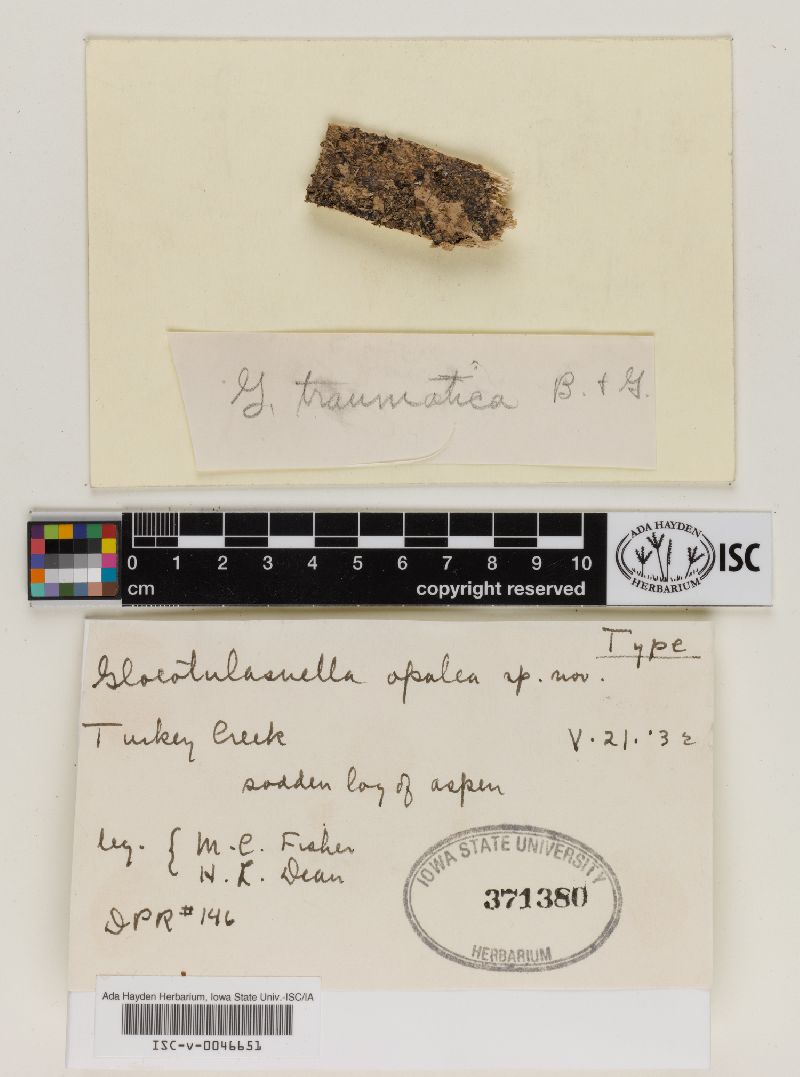 G. traumatica B. & G.
0 1 2 3 4 5 6 7 8 9 10
cm copyright reserved
ADA HAYDEN
HERBARIUM
ISC
Type
Gloeotulasnella opalea sp. nov.
Turkey Creek V.21.'32
sodden log of aspen
leg. { M. C. Fisher
H. L. Dean
DPR #146
IOWA STATE UNIVERSITY
371380
HERBARIUM
Ada Hayden Herbarium, Iowa State Univ.-ISC/IA
ISC-v-0046651